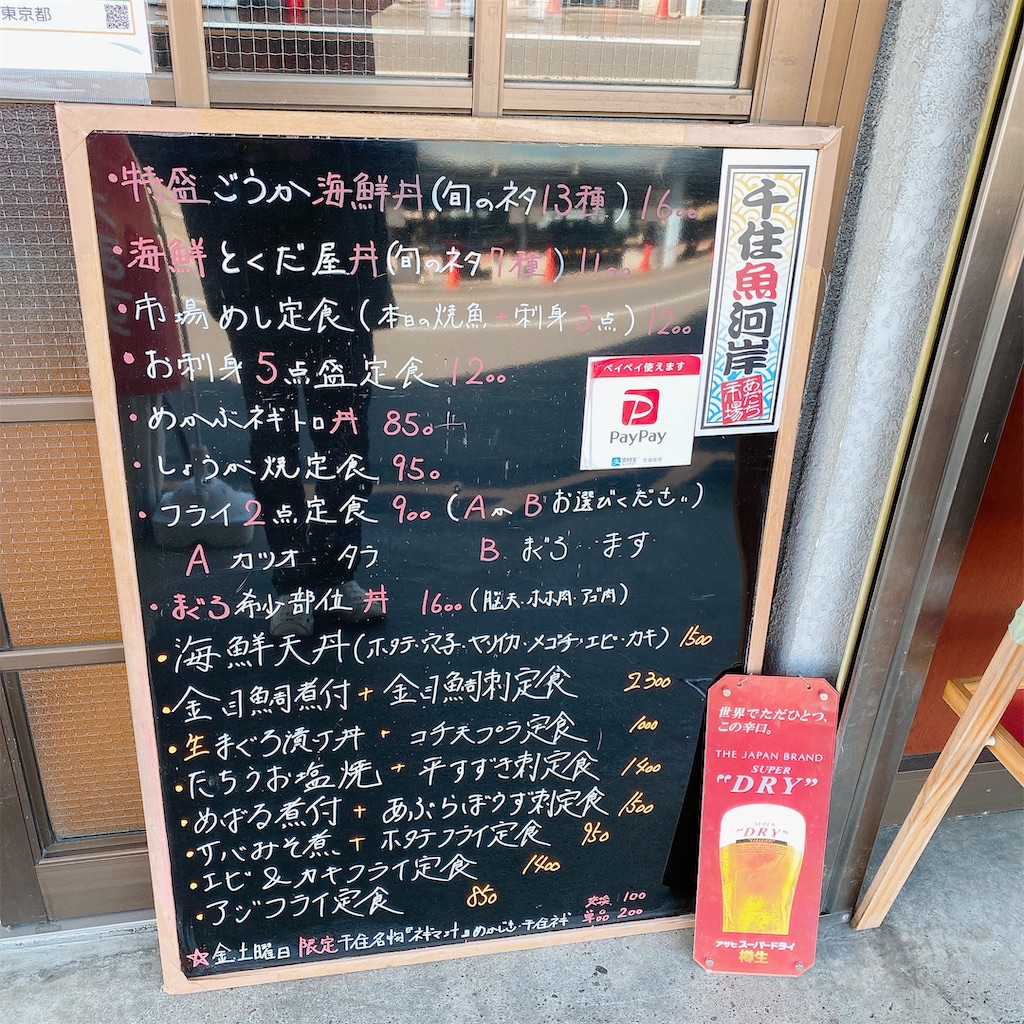 東京都
・特盛ごうか海鮮丼(旬のネタ13種)1600
・海鮮とくだ屋丼(旬のネタ7種)1100
・市場めし定食(本日の焼魚+刺身3点)1200
・お刺身5点盛定食 1200
・めかぶネギトロ丼 850
・しょうが焼定食 950
・フライ2点定食 900(AかBお選びください)
A カツオ・タラ B まぐろ・ます
・まぐろ希少部位丼 1600(脳天・ホホ肉・アゴ肉)
・海鮮天丼(ホタテ・穴子・ヤリイカ・メゴチ・エビ・カキ)1500
・金目鯛煮付+金目鯛刺定食 2300
・生まぐろ漬丁丼・コチ天プラ定食 1000
・たちうお塩焼+平すずき刺定食 1400
・めばる煮付+あぶらぼうず刺定食 1500
・サバみそ煮+ホタテフライ定食 950
・エビ&カキフライ定食 1400
・アジフライ定食 850
交換 100
単品 200
☆金.土曜日限定千住名物
千住魚河岸
あだち市場
ペイペイ使えます
PayPay
世界でただひとつ、
この辛口。
THE JAPAN BRAND
SUPER
"DRY"
SUPER
"DRY"
アサヒスーパードライ
樽生